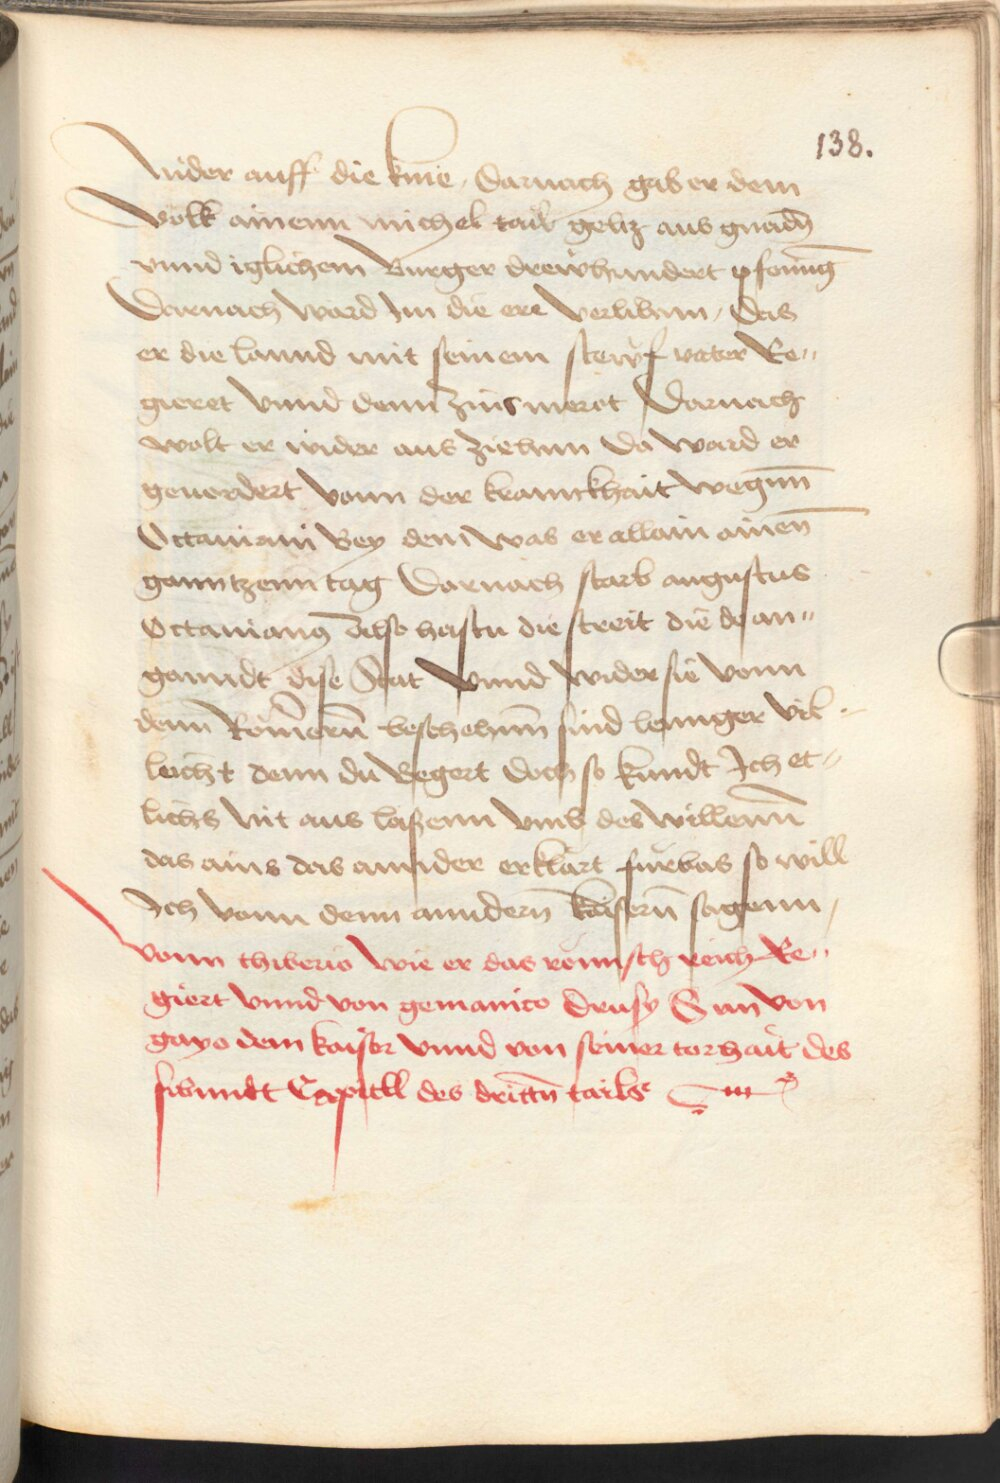 138.
Nider auff die knie, Darnach gab er dem
Volk ainenn michel tail geltz aus gnadn̄
vnnd iglichem Burger drewhundert pfenīng
Darnach ward Im die ere verlihnn, Das
er die lannd mit seinem stewf vater Re„
gieret Vnnd denn Zinsmerot Darnach
wolt er wider aus Ziehnn Da ward er
geuordert vonn der kranckhait wegnn̄
Octaniani Bey dem was er allain ainen̄
ganntzenn tag Darnach starb augustus
Octanianus Also hastu die streit die do an„
ganndt dise Stat Vnnd wider sie vonn
denn Römern̄ beschehnn̄ sind lennger vil„
leicht denn du Begert Doch so kundt Ich et„
lichs nit aus laßenn Vmb des willenn̄
das ains das annder erklärt fürbas so will
Ich vonn denn anndern̄ kaisern̄ sagenn,
Vonn thiberio Wie er das römisch reich Re„
giert Vnnd von gemanico Drusy Sun von
gayo dem kaiser Vnnd von seiner torhait des
sibnndt Capitell des drittn̄ tails